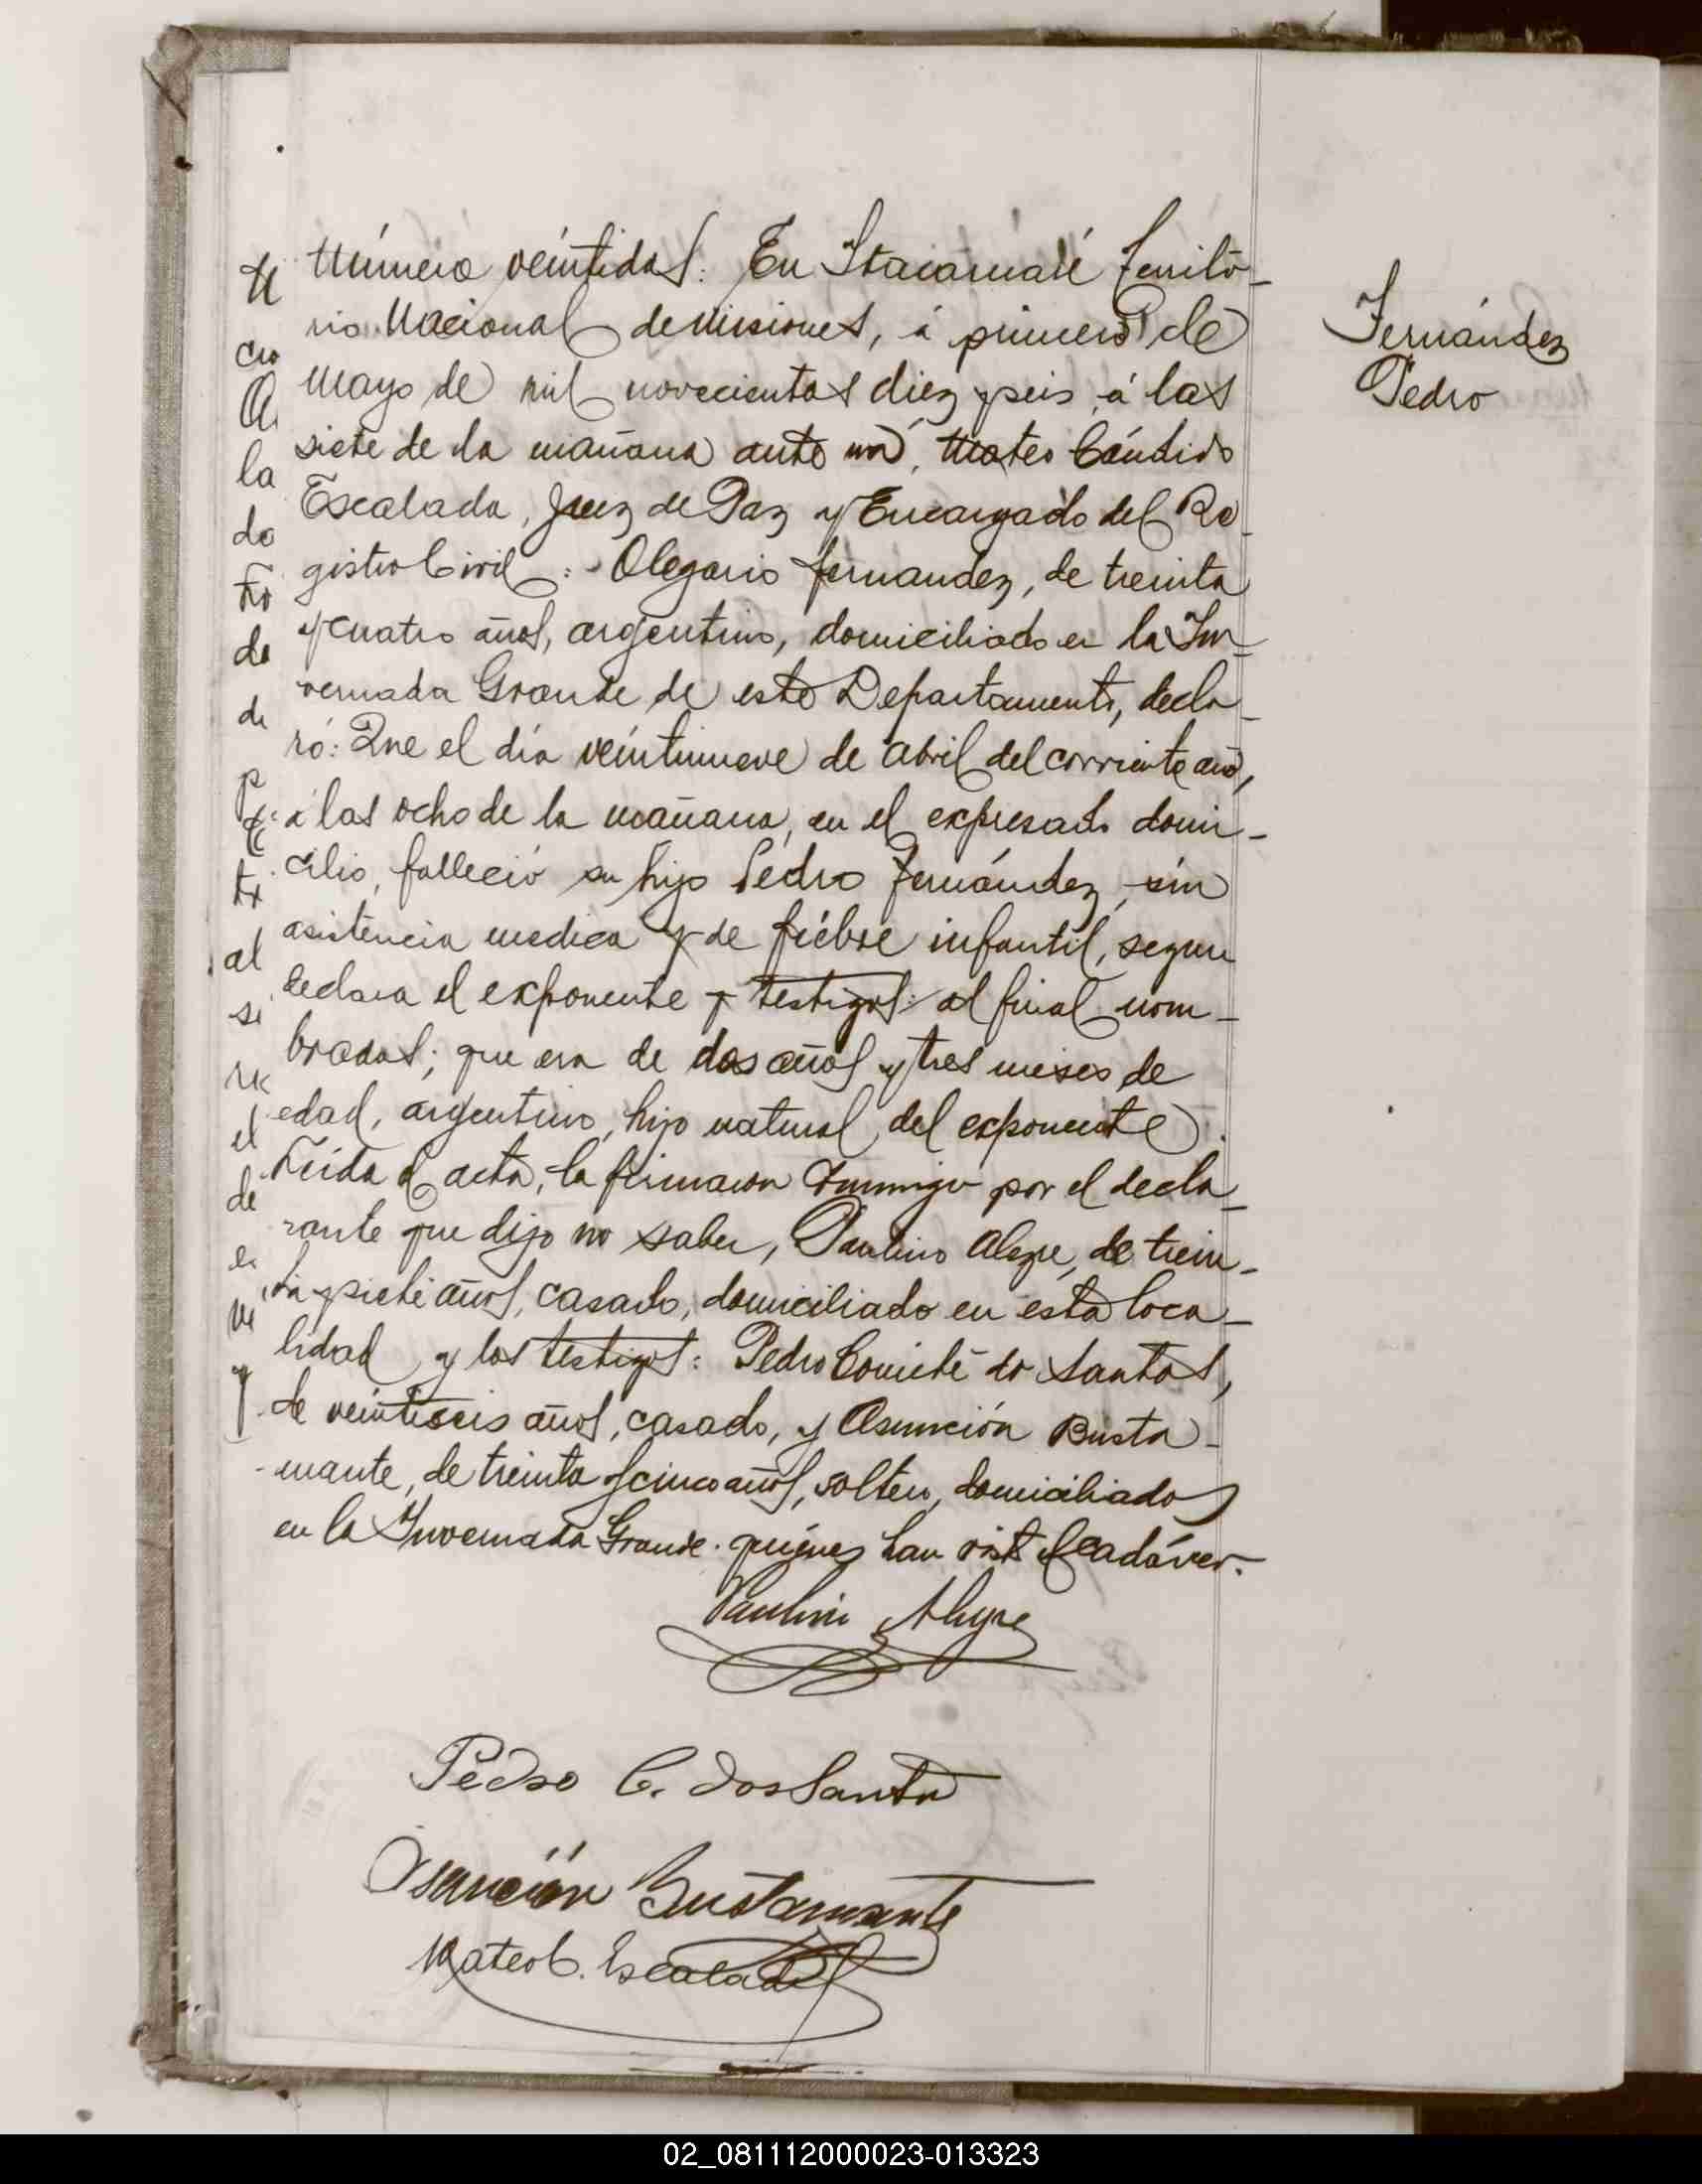 Número veintidos: En Itacaruaré Territó-
rio Nacional de Misiones, á primero de
Mayo de mil novecientos diez y seis, á las
siete de la mañana ante mí, Mateo Cándido
Escalada, Juez de Paz y Encargado del Re-
gistro Civil: Olegario Fernandez, de treinta
y cuatro años, argentino, domiciliado en la In-
vernada Grande de este Departamento, decla-
ró: Que el día veintinueve de Abril del corriente año,
á las ocho de la mañana, en el expresado domi-
cilio, falleció su hijo Pedro Fernández, sin
asistencia medica y de fiébre infantil, segun
declara el exponente y testigos al final nom-
brados; que era de dos años y tres meses de
edad, argentino, hijo natural del exponente.
Leida el acta, la firmaron conmigo por el decla-
rante que dijo no saber, Paulino Alegre, de trein-
ta y siete años, casado, domiciliado en esta loca-
lidad y los testigos: Pedro do Santos,
de veintiseis años, casado, y Asunción Busta-
mante, de treinta y cinco años, soltero, domiciliados
en la Invernada Grande. quiénes han visto el cadáver.
Paulino Alegre
Pedro C. dos Santo
Asunción Bustamante
Mateo C. Escalada
Fernández
Pedro
cro
la
do
de
de
al
si
el
de
y
02_081112000023-013323